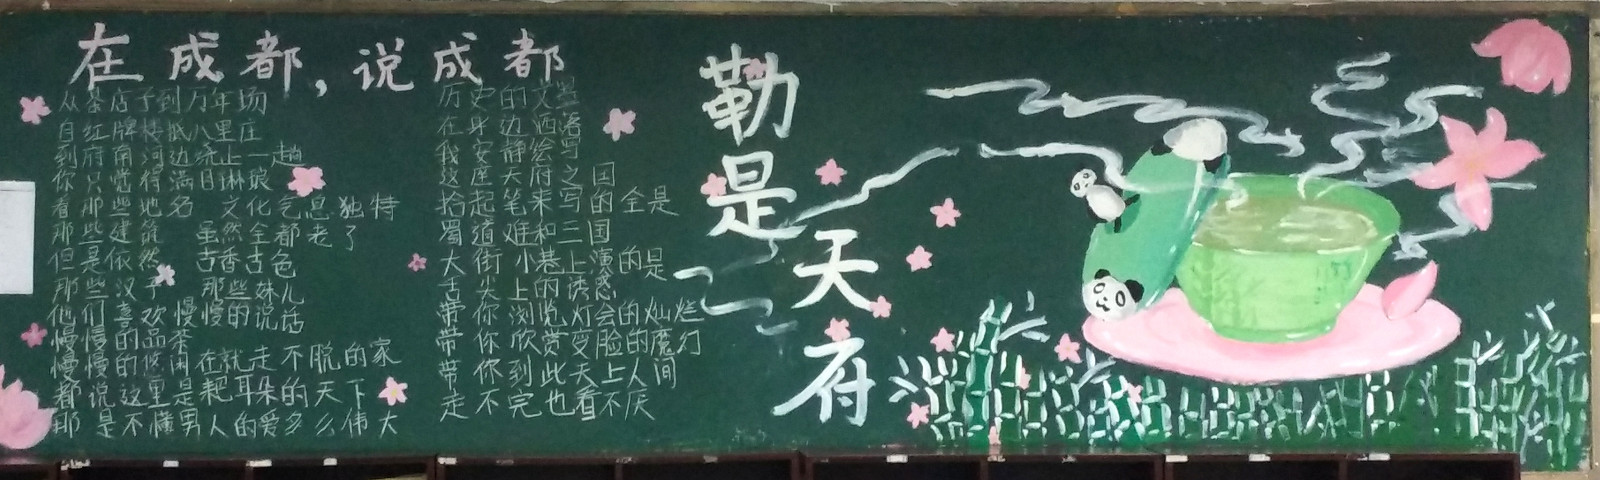 在成都，说成都
从茶店子到万年场
自红牌楼抵八里庄
到府南河边绕上一趟
你只觉得满目琳琅
看那些地名 文化气息独特
那些建筑 虽然全都老了
但是依然 古香古色
那些汉子 那些妹儿
他们喜欢 慢慢的说话
慢慢的品茶
慢慢的悠闲 在就走不脱的家
都说这里是耙耳朵的天下
那是不懂男人的爱多么伟大
历史的文墨
在身边洒落
我安静绘写
这座天府之国
拾起笔来写的全是
蜀道难和三国
大街小巷上演的是
舌尖上的诱惑
带你浏览灯会的灿烂
带你欣赏变脸的魔幻
带你到此天上人间
走不完也看不厌
勒是
天府